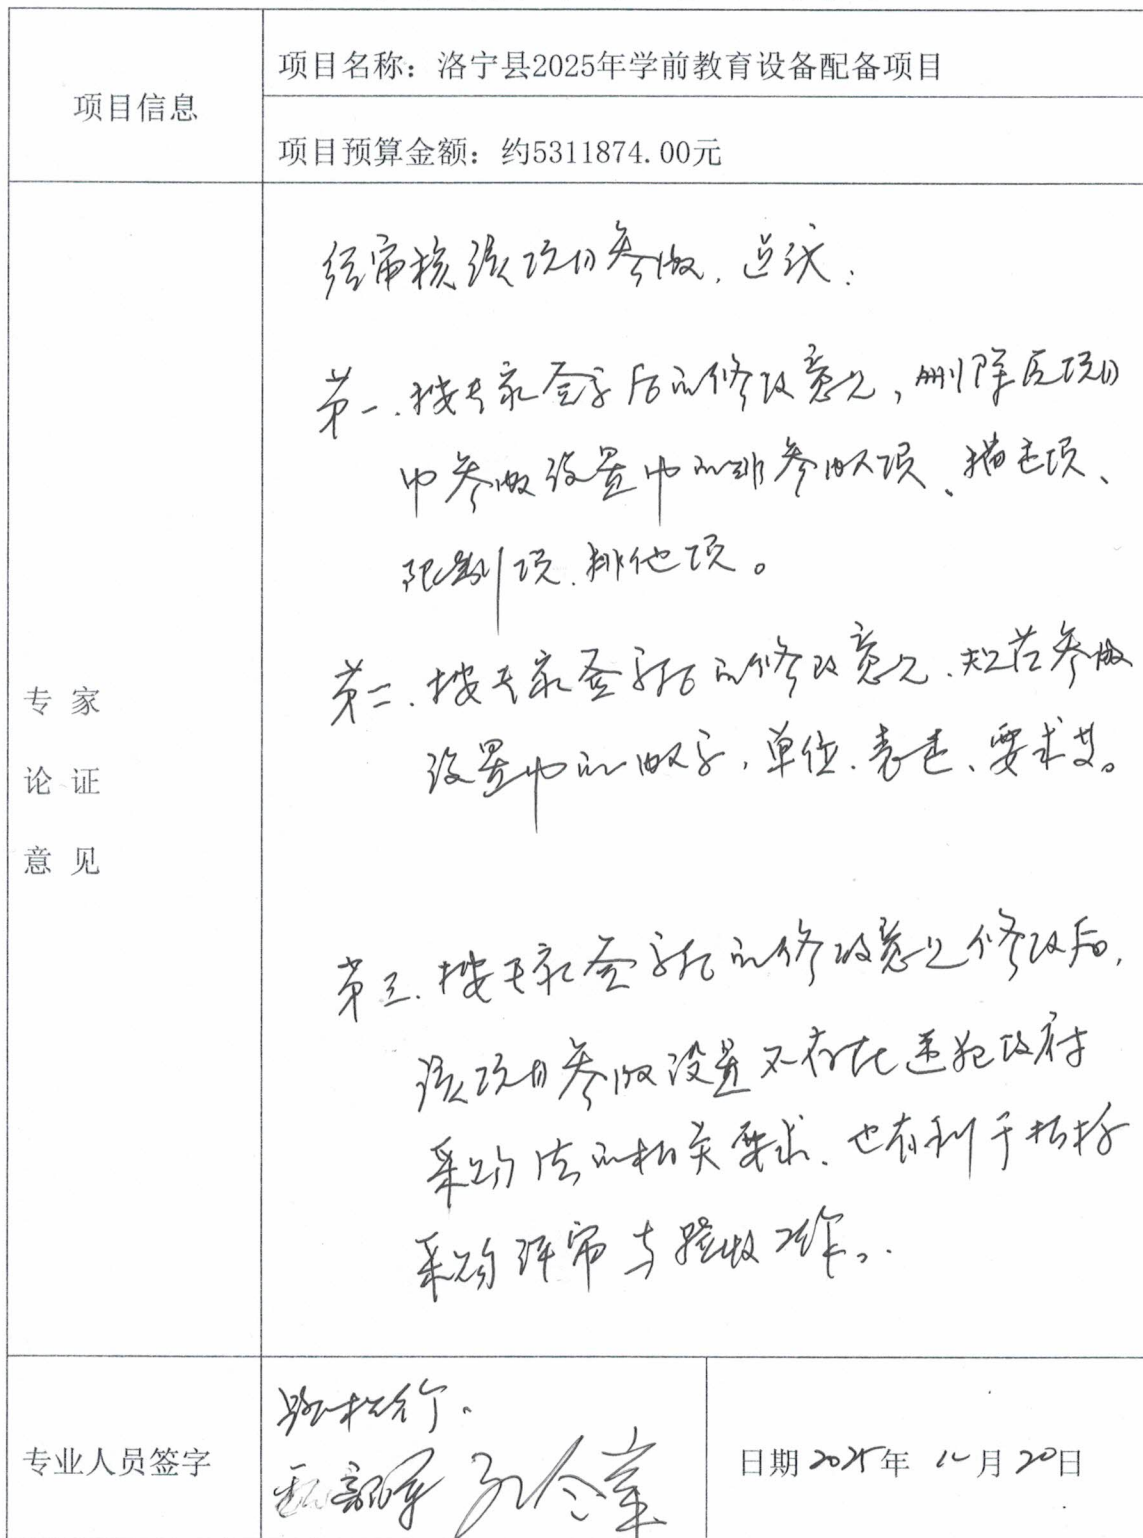 项目信息
项目名称：洛宁县2025年学前教育设备配备项目
项目预算金额：约5311874.00元
专家
论证
意见
经审核该项目参数，建议：
第一、按专家签字后的修改意见，删除原项目
中参数设置中的非参数项、描述项、
限制项、排他项。
第二、按专家签字后的修改意见、规范参数
设置中的数字，单位、表述、要求等。
第三、按专家签字后的修改意见修改后，
该项目参数设置不存在违犯政府
采购法的相关要求、也有利于招标
采购评审与验收工作。
专业人员签字
日期2025年 月20日